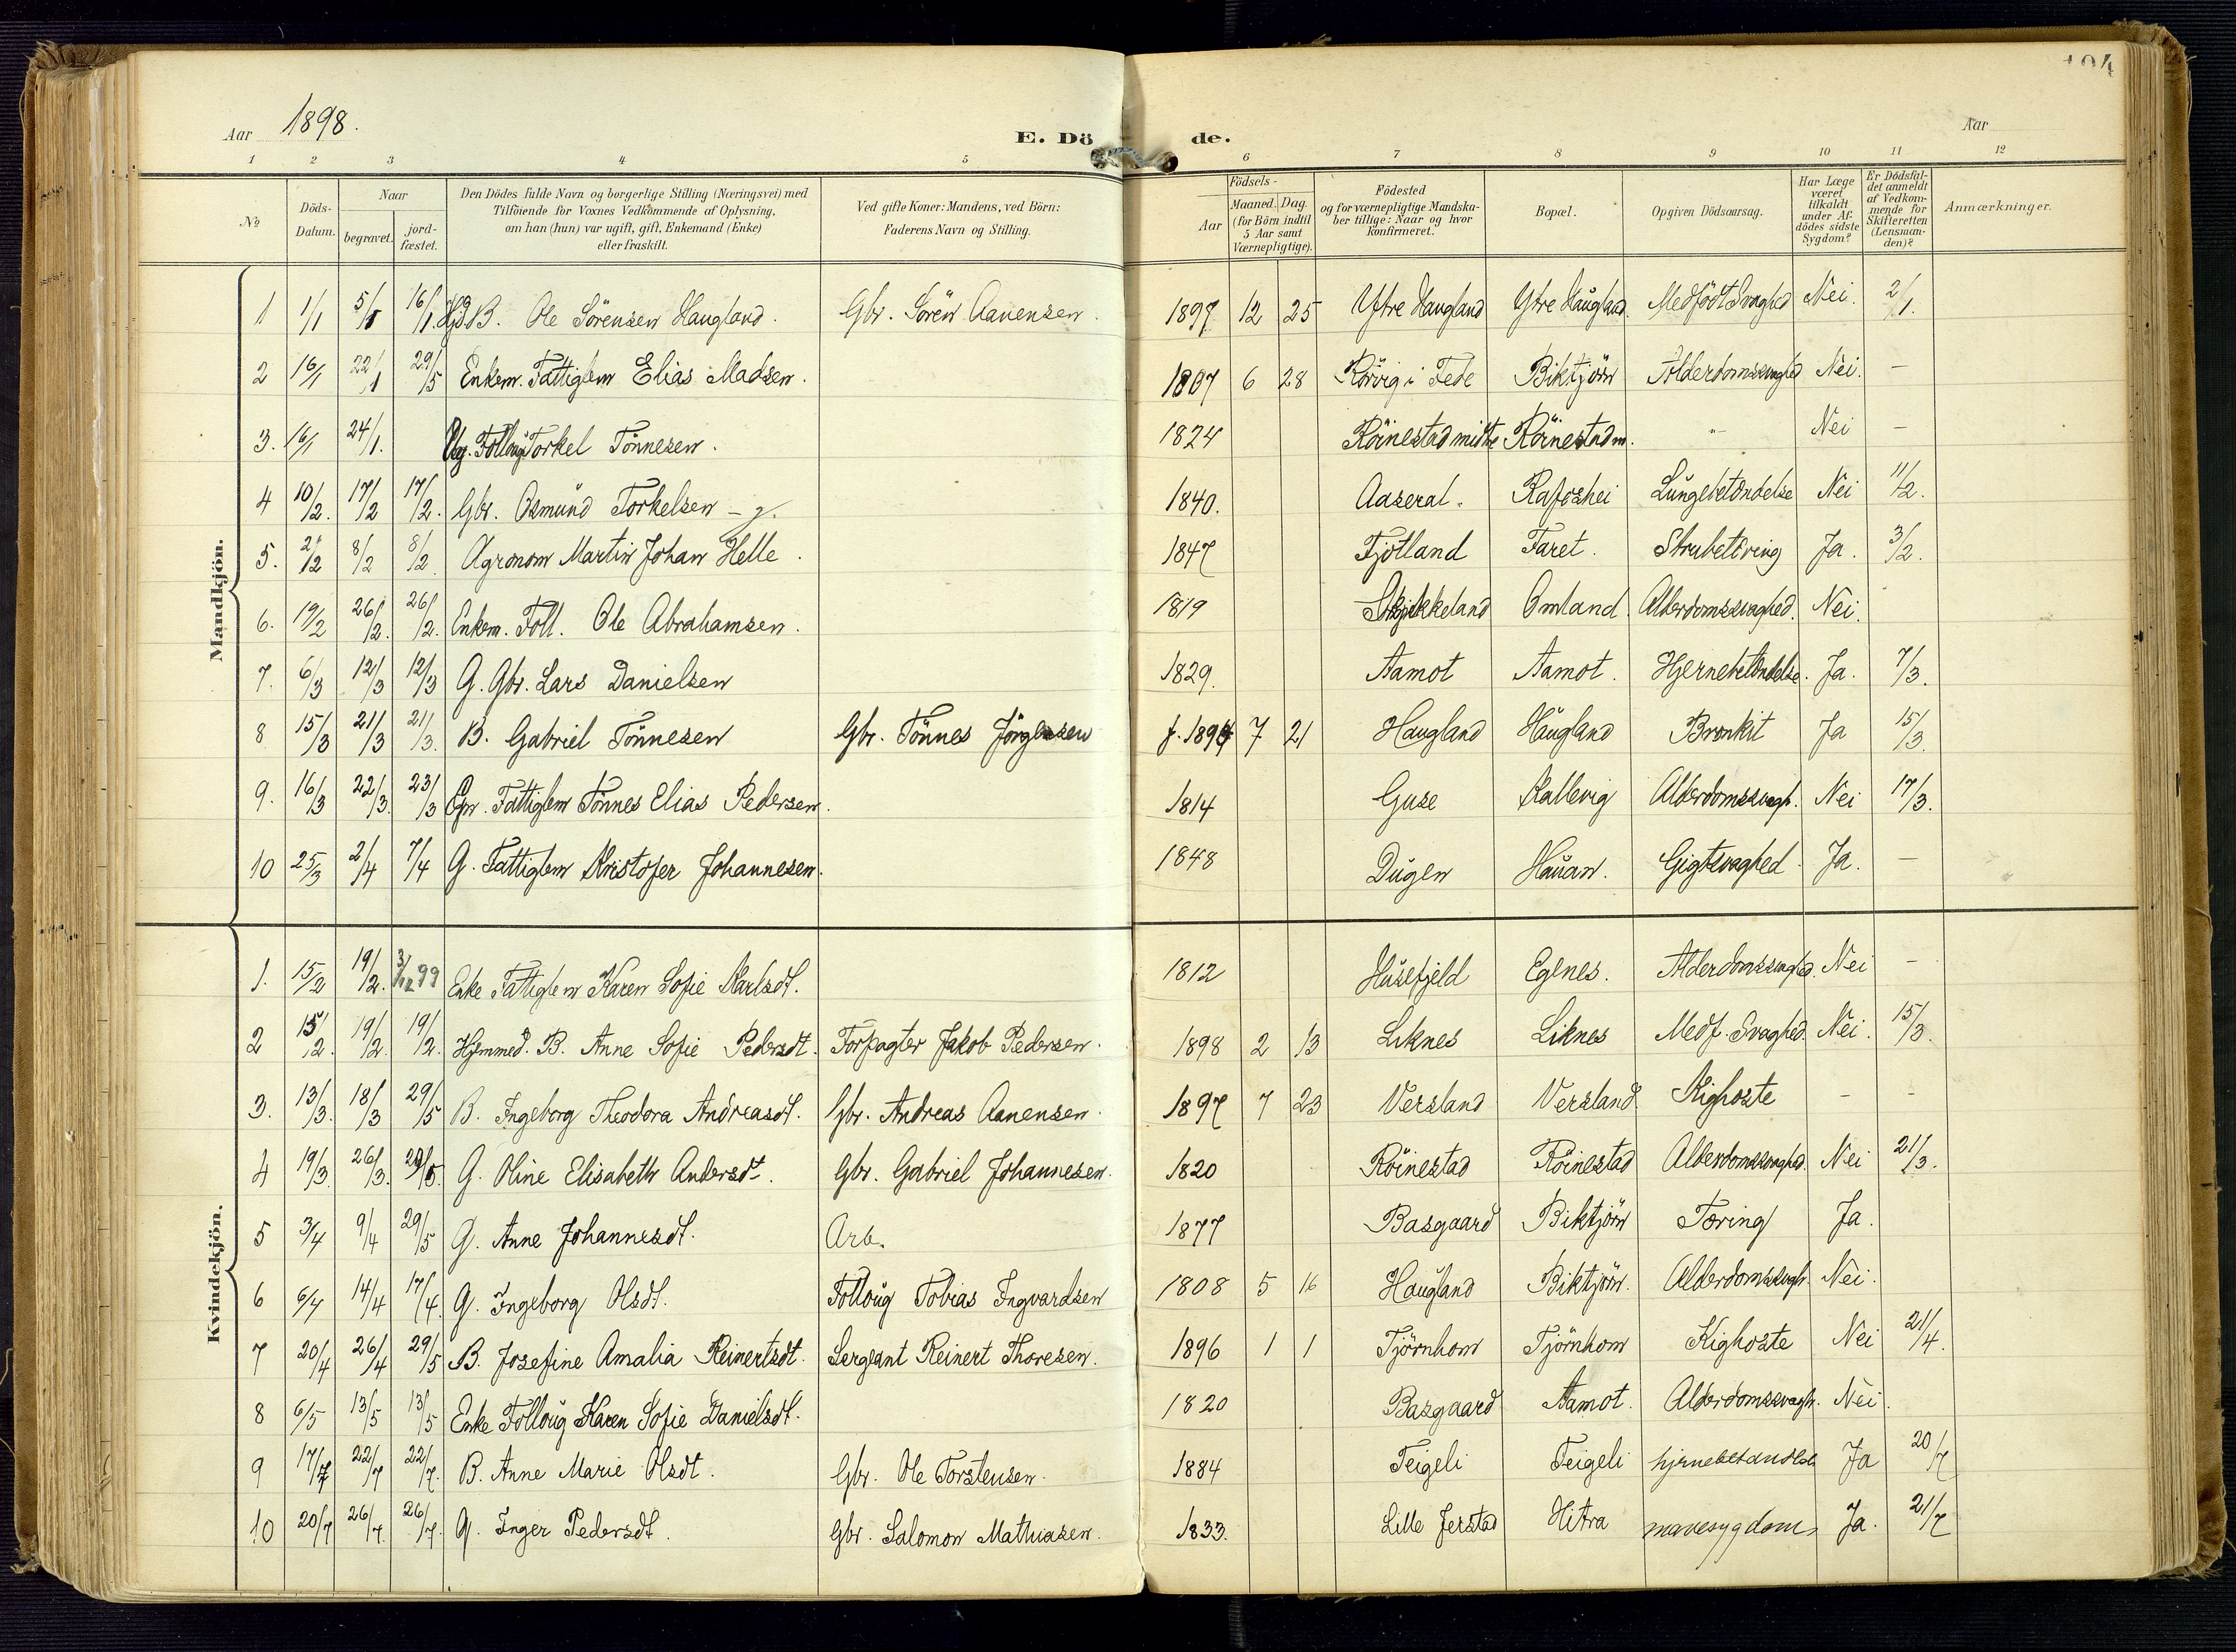 Aar 1898.
E. Dö de.
Aar
1 2 3 4 5 6 7 8 9 10 11 12
№
Döds-Datum.
Naar
begravet.
jord-fæstet.
Den Dödes fulde Navn og borgerlige Stilling (Næringsvei) med
Tilföiende for Voxnes Vedkommende af Oplysning,
om han (hun) var ugift, gift, Enkemand (Enke)
eller fraskilt.
Ved gifte Koner: Mandens, ved Börn:
Faderens Navn og Stilling.
Födsels-
Aar
Maaned. Dag.
(for Börn indtil
5 Aar samt
Værnepligtige).
Födested
og for værnepligtige Mandska-
ber tillige: Naar og hvor
konfirmeret.
Bopæl.
Opgiven Dödsaarsag.
Har Læge
været
tilkaldt
under Af-
dödes sidste
Sygdom?
Er Dödsfal-
det anmeldt
af Vedkom-
mende for
Skifteretten
(Lensman-
den)?
Anmærkninger.
Mandkjön.
1 1/1 5/1 16/1 Hjd. B. Ole Sörensen Haugland. Gbr. Sören Aanensen. 1897 12 25 Ytre Haugland Ytre Haugland. Medfödt Svaghed Nei. 2/1.
2 16/1 22/1 29/5 Enkem. Fattiglem Elias Madsen. 1807 6 28 Rörvig i Fede Biktjörn Alderdomssvaghed Nei. —
3. 16/1 24/1. Ug. Folloug Torkel Tönnesen. 1824 Röinestad midtre Röinestad m. " Nei —
4 10/2. 17/2 17/2. Gbr. Osmund Torkelsen – g. 1840. Aaseral. Rafoshei Lungebetændelse Nei 11/2.
5. 2/2 8/2 8/2. Agronom Martin Johan Helle. 1847 Fjotland Faret. Strubetæring Ja. 3/2.
6. 19/2 26/2. 26/2. Enkem. Foll. Ole Abrahamsen. 1819 Omland. Alderdomssvaghed. Nei.
7. 6/3 12/3 12/3 G. Gbr. Lars Danielsen 1829. Aamot Aamot. Hjernebetændelse. Ja. 7/3.
8 15/3 21/3 21/3. B. Gabriel Tönnesen Gbr. Tönnes Jörgensen f. 1894 7 21 Haugland Haugland Bronkit Ja 15/3.
9. 16/3 22/3. 23/3 Fattiglem Tönnes Elias Pedersen. 1814 Guse Kallevig Alderdomssvagh. Nei 17/3.
10 25/3 2/4 7/4 G. Fattiglem Kristofer Johannesen. 1848 Dugen Hauan. Gigtsvaghed. Ja. —
Kvindekjön.
1. 15/2 19/2. 99 Enke Fattiglem Karen Sofie Karlsdt. 1812 Husefjeld Egenes. Alderdomssvaghed. Nei —
2 15/2. 19/2. 19/2. Hjemmed. B. Anne Sofie Pedersdt. Forpagter Jakob Pedersen. 1898 2 13 Liknes Liknes Medf. Svaghed. Nei. 15/3.
3. 13/3. 18/3 29/5 B. Ingeborg Theodora Andreasdt. Gbr. Andreas Aanensen. 1897 7 23 Versland Versland. Kighoste – –
4 19/3. 26/3. 29/5. G. Oline Elisabeth Andersdt. Gbr. Gabriel Johannesen. 1820 Röinestad Röinestad Alderdomssvaghed. Nei 21/3.
5 3/4 9/4 29/5 G. Anne Johannesdt. Arb. 1877 Basgaard Biktjörn Tæring Ja.
6 6/4 14/4 17/4. G. Ingeborg Olsdt. Folloug Tobias Ingvardsen 1808 5 16 Haugland Biktjörn. Alderdomssvagh. Nei.
7 20/4 26/4 29/5 B. Josefine Amalia Reinertsdt. Sergeant Reinert Thoresen. 1896 1 1 Tjörnhom Tjörnhom Kighoste Nei 21/4.
8 6/5 13/5 13/5 Enke Folloug Karen Sofie Danielsdt. 1820 Basgaard Aamot. Alderdomssvagh. Nei.
9 17/7 22/7 22/7. B. Anne Marie Olsdt. Gbr. Ole Torstensen. 1884 Feigeli Feigeli hjernebetændelse Ja 20/7
10 20/7 26/7 26/7. G. Inger Pedersdt. Gbr. Salomon Mathiasen. 1833. Lille Jerstad Hitra mavesygdom Ja. 21/7